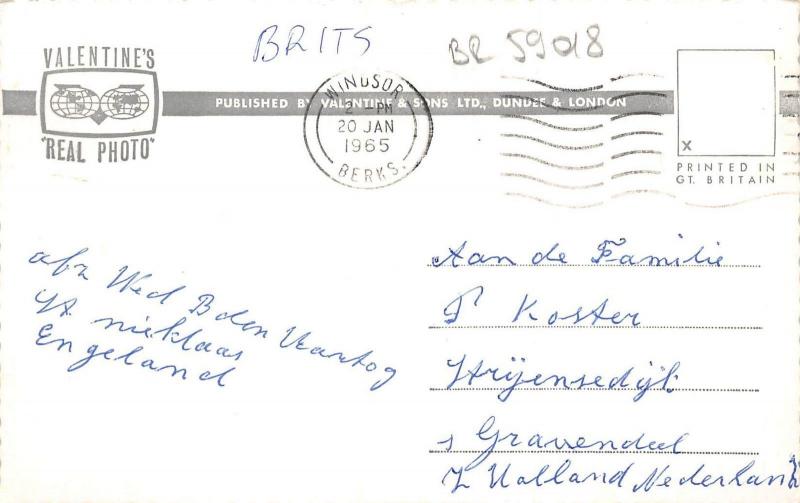 BRITS
BR 59018
VALENTINE'S
"REAL PHOTO"
PUBLISHED BY VALENTINE & SONS LTD., DUNDEE & LONDON
WINDSOR
2 - PM
20 JAN
1965
BERKS.
X
PRINTED IN
GT. BRITAIN
afz Wed B den Hartog
St nieklaas
Engeland
Aan de Familie
P Koster
Strijensedijk
s Gravendeel
Z Holland Nederland